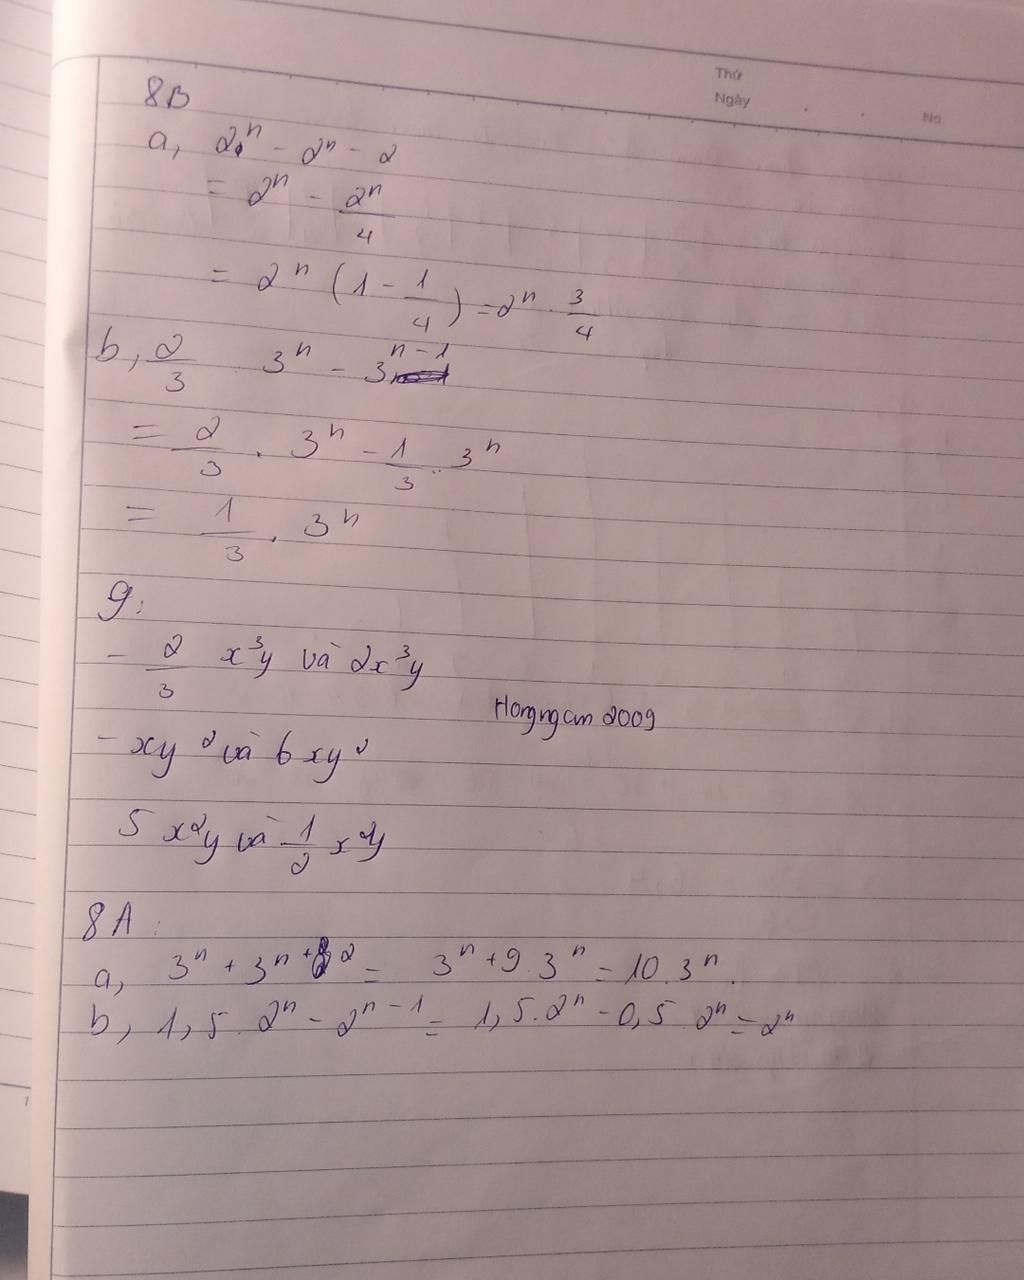 Thứ
Ngày
No
8B
a, 2^n - 2^n - 2
= 2^n - 2^n/4
= 2^n (1 - 1/4) = 2^n . 3/4
b, 2/3 . 3^n - 3^(n-1)
= 2/3 . 3^n - 1/3 . 3^n
= 1/3 . 3^n
9:
- 2/3 x^3y và 2x^3y
Hongngan 2009
- xy^2 và 6xy^2
5x^2y và 1/2 x^2y
8A:
a, 3^n + 3^(n+2) = 3^n + 9.3^n = 10.3^n.
b, 1,5.2^n - 2^(n-1) = 1,5.2^n - 0,5.2^n = 2^n
1